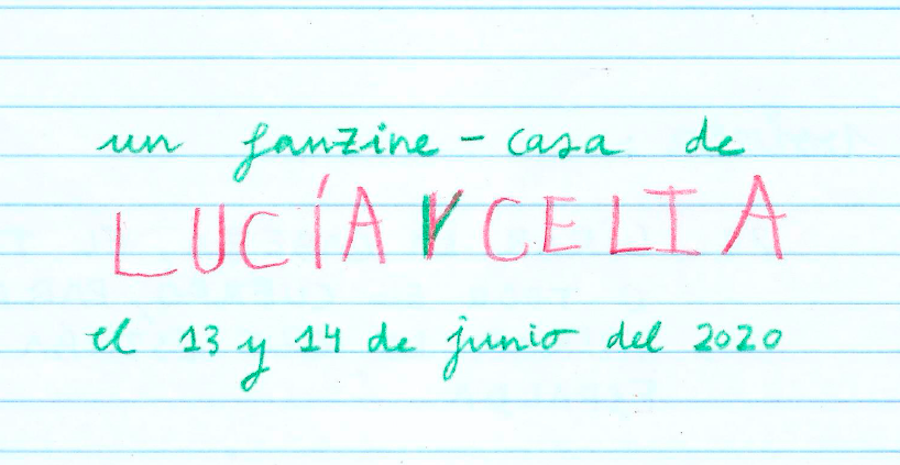 un fanzine - casa de
LUCÍA Y CELIA
el 13 y 14 de junio del 2020